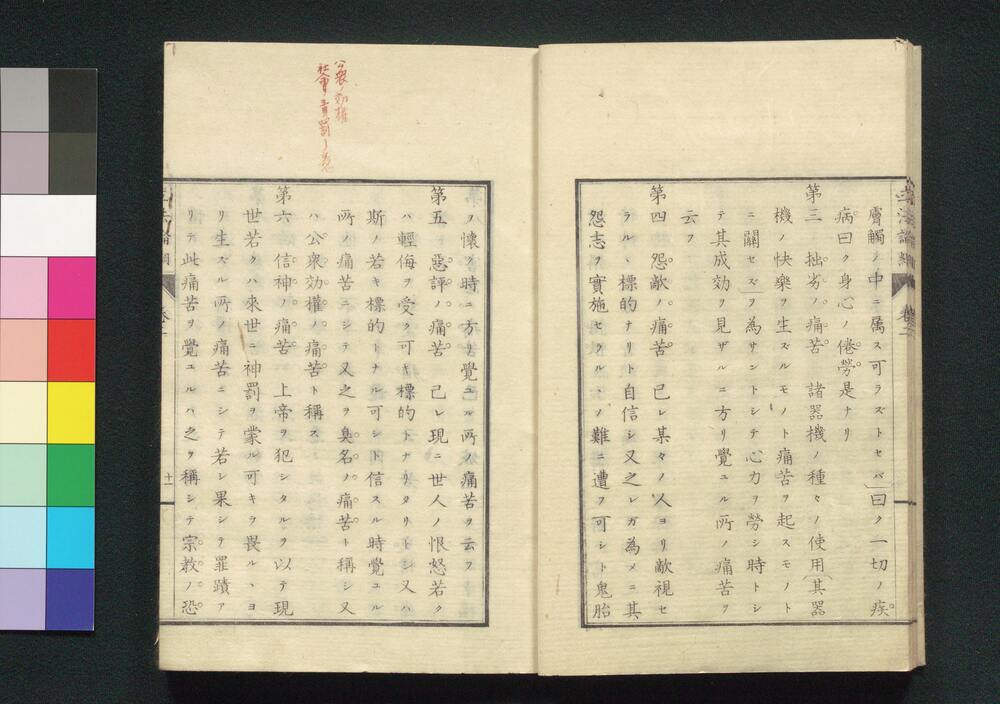 膚觸ノ中ニ属ス可ラズトセバ」曰ク一切ノ疾
病曰ク身心ノ倦勞是ナリ
第三 拙劣ノ痛苦 諸器機ノ種々ノ使用(其器
機ノ快樂ヲ生ズルモノト痛苦ヲ起スモノト
ニ關セズ)ヲ為サントシテ心力ヲ勞シ時トシ
テ其成効ヲ見ザルニ方リ覺ユル所ノ痛苦ヲ
云フ
第四 怨敵ノ痛苦 已レ某々ノ人ヨリ敵視セ
ラルヽ標的ナリト自信シ又之レガ為メニ其
怨志ヲ實施セラルヽノ難ニ遭フ可シト鬼胎
ヲ懐ク時ニ方リ覺ユル所ノ痛苦ヲ云フ
第五 惡評ノ痛苦 己レ現ニ世人ノ恨怒若ク
ハ輕侮ヲ受ク可キ標的トナリタリトシ又ハ
斯ノ若キ標的トナル可シト信スル時覺ユル
所ノ痛苦ニシテ又之ヲ臭名ノ痛苦ト稱シ又
ハ公衆効權ノ痛苦ト稱ス
第六 信神ノ痛苦 上帝ヲ犯シタルヲ以テ現
世若クハ來世ニ神罰ヲ蒙ル可キヲ畏ルヽヨ
リ生ズル所ノ痛苦ニシテ若シ果シテ罪蹟ア
リテ此痛苦ヲ覺ユルハ之ヲ稱シテ宗教ノ恐
公衆ノ効權
社會責罰ノ
十一